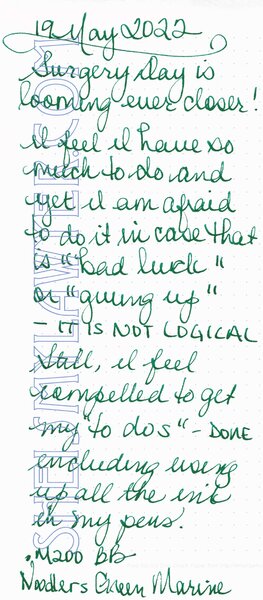 19 May 2022
Surgery Day is
looming ever closer!
I feel I have so
much to do and
yet I am afraid
to do it in case that
is "bad luck"
or "giving up"
- IT IS NOT LOGICAL
Still, I feel
compelled to get
my "to dos" - DONE
including using
up all the ink
in my pens.
. M200 BB
Noodlers Green Marine